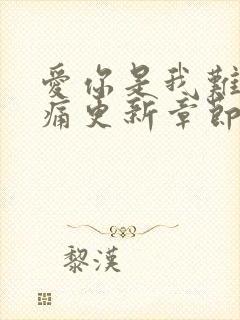 愛你是我難
痛更新章節
黎漢